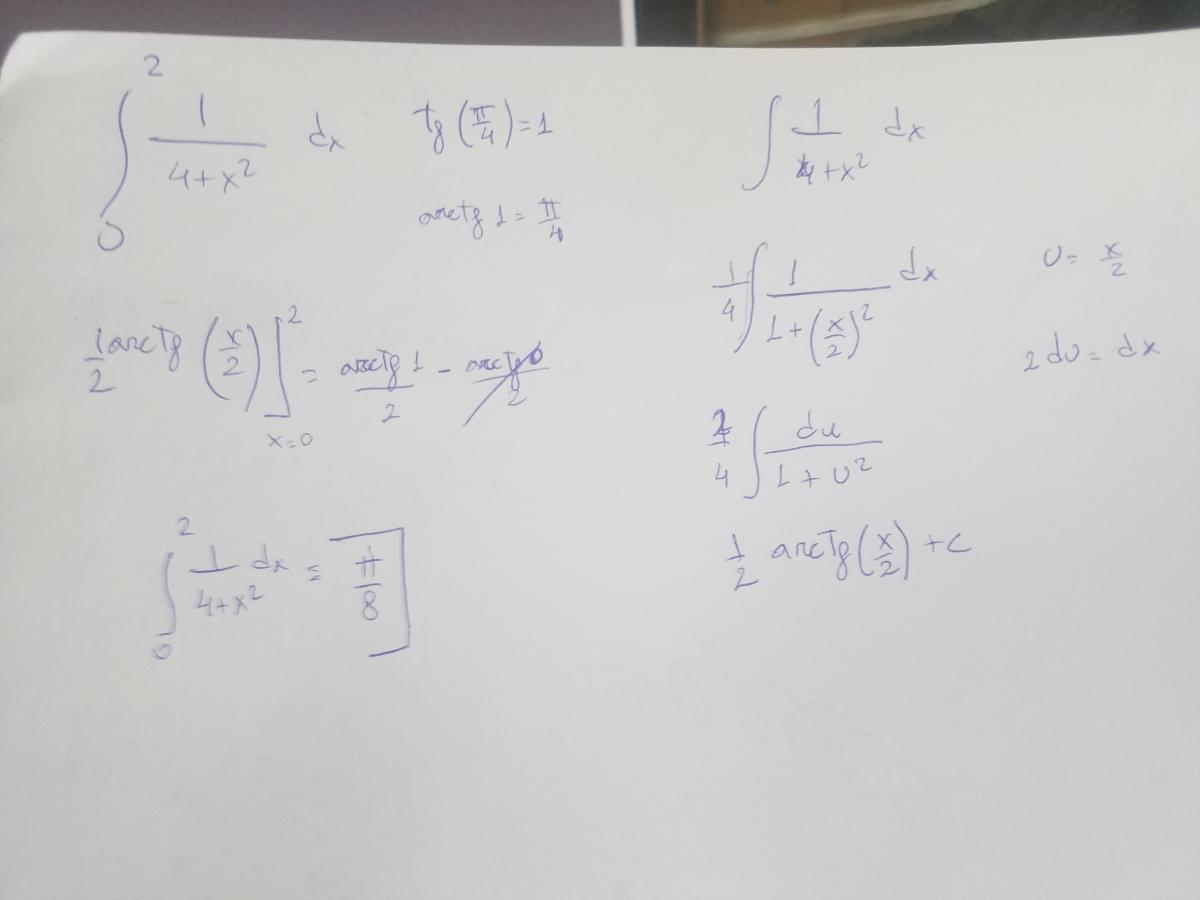 ∫₀² 1/(4+x²) dx
tg(π/4)=1
arctg 1 = π/4
1/2 arctg (x/2)]²ₓ₌₀ = arctg 1/2 - arctg 0/2
∫₀² 1/(4+x²) dx = π/8
∫ 1/(4+x²) dx
1/4 ∫ 1/(1+(x/2)²) dx
u= x/2
2 du = dx
2/4 ∫ du/(1+u²)
1/2 arctg(x/2) +c